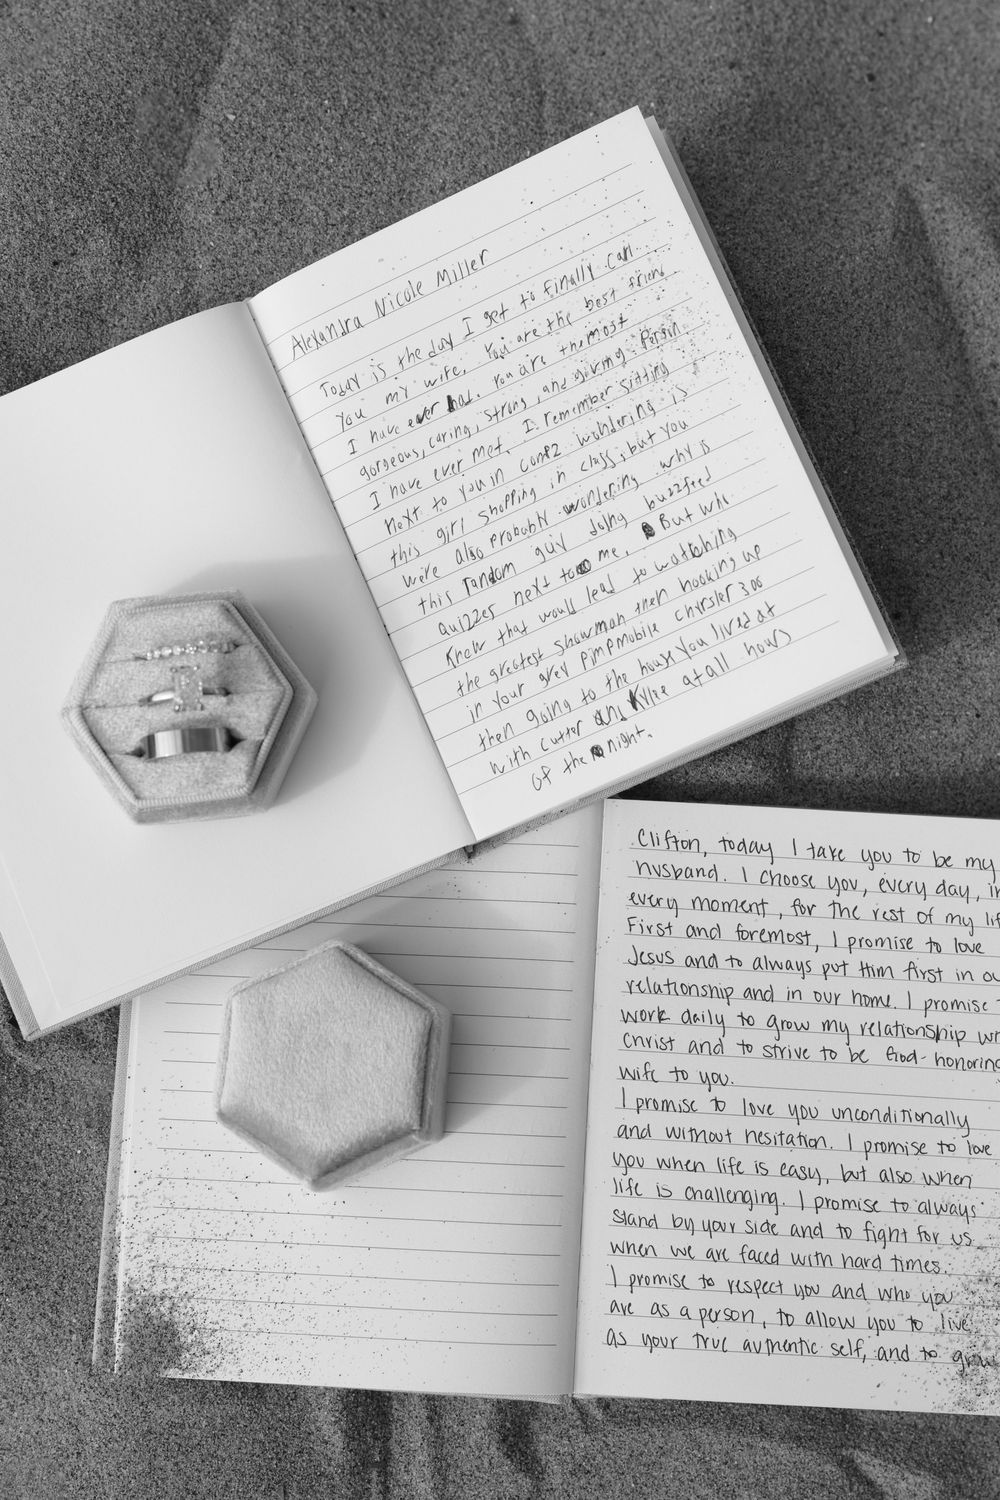 Alexandra Nicole Miller
Today is the day I get to finally call
you my wife. You are the best friend
I have ever had. You are the most
gorgeous, caring, strong, and giving person
I have ever met. I remember sitting
next to you in comp2 wondering is
this girl shopping in class, but you
were also probably wondering why is
this random guy doing buzzfeed
quizzes next to me. But who
knew that would lead to watching
the greatest showman then hooking up
in your grey pimpmobile chrysler 300
then going to the house you lived at
with cutter and Kylee at all hours
of the night.
Clifton, today I take you to be my
husband. I choose you, every day, in
every moment, for the rest of my lif
First and foremost, I promise to love
Jesus and to always put Him first in ou
relationship and in our home. I promise t
work daily to grow my relationship wi
Christ and to strive to be God-honoring
wife to you.
I promise to love you unconditionally
and without hesitation. I promise to love
you when life is easy, but also when
life is challenging. I promise to always
stand by your side and to fight for us
when we are faced with hard times.
I promise to respect you and who you
are as a person, to allow you to live
as your true authentic self, and to grow